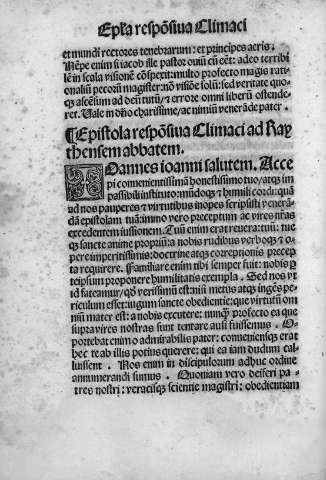 Epl'a respõsiua Climaci
et mundi rectores tenebrarum: et principes aeris.
Nẽpe enim si iacob ille pastor ouiũ cũ eẽt: adeo terribi
lẽ in scala visionẽ cõspexit: multo profecto magis rati-
onaliũ pecorũ magister: nõ visiõe solũ: sed veritate quo-
qz ascẽsum ad deũ tutũ: z errore omni liberũ ostende-
ret. Vale in dño charissime: ac nimiũ venerãde pater.
¶ Epistola respõsiua Climaci ad Ray
thensem abbatem.
Ioannes ioanni salutem. Acce
pi conuenientissimã honestissimo tue: atqz im
passibili instituto: mũdoqz z humili cordi: quã
ad nos pauperes z virtutibus inopes scripsisti venerã-
dã epistolam tuã: immo vero preceptum ac vires nr̃as
excedentem iussionem. Tuũ enim erat reuera: tuũ: tue
qz sancte anime propriũ: a nobis rudibus verboqz z o-
pere imperitissimis: doctrine atqz correptionis precep-
ta requirere. Familiare enim tibi semper fuit: nobis p
teipsum proponere humilitatis exempla. Sed nos vt
id fateamur: qd verissimũ est: nisi metus atqz ingẽs pe-
riculum esset: iugum sancte obedientie: que virtutũ om
niũ mater est: a nobis excutere: nunqz profecto ea que
supra vires nostras sunt tentare ausi fuissemus. O-
portebat enim o admirabilis pater: conueniensqz erat
hec te ab illis potius querere: qui ea iam dudum cal-
luissent. Nos enim in discipulorum adhuc ordine
annumerandi sumus. Quoniam vero deiferi pa-
tres nostri: veracisqz scientie magistri: obedientiam